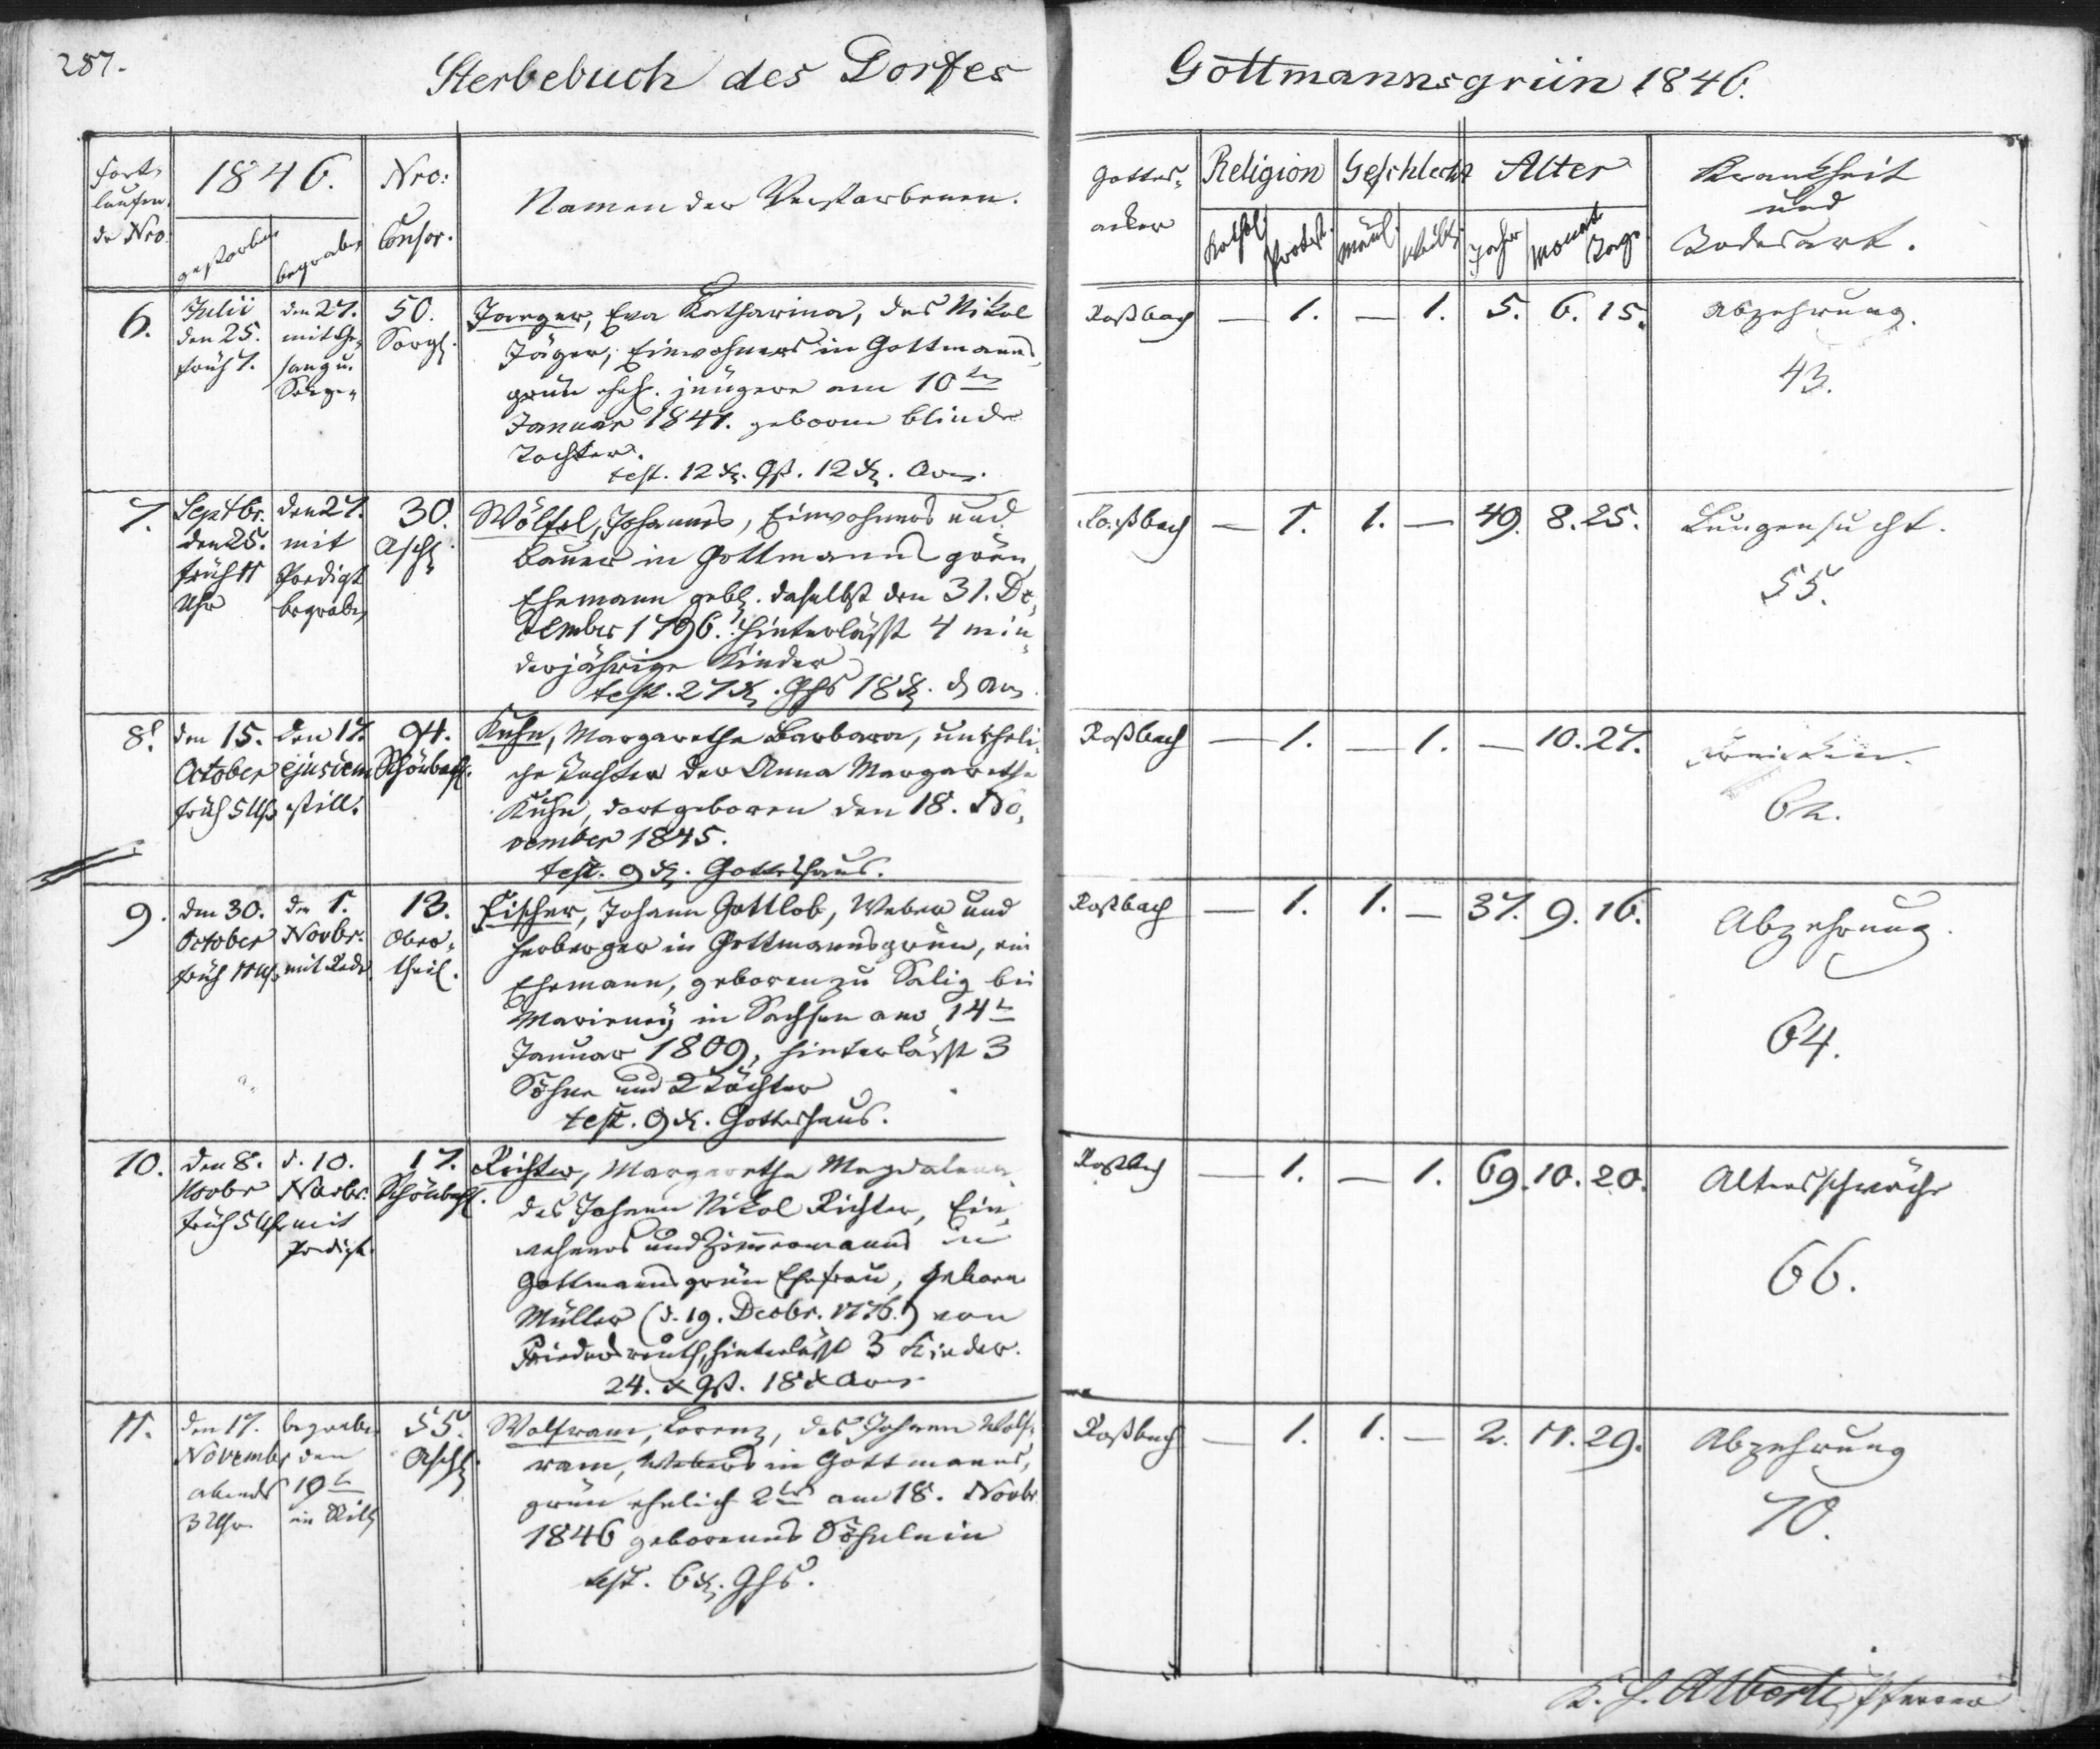 287.
Sterbebuch des Dorfes Gottmannsgrün 1846.
Fort-
laufen-
de Nro.
1846.
gestorben
begraben
Nro:
Conser.
Namen der Verstorbenen.
Gottes-
acker
Religion
Kathol.
Protest.
Geschlecht
Mänl.
Weibl.
Alter
Jahr
Monat
Tage
Krankheit
und
Todesart.
6.
Julii
den 25.
früh 7.
den 27.
mit Ge-
sang u.
Segen
50.
Sorg.
Jaeger, Eva Katharina, des Nikol
Jäger, Einwohners in Gottmanns-
grün ehel. jüngere am 10ten
Januar 1841. geborne blinde
Tochter.
test. 12 x. Gß. 12 x. Arm.
Roßbach
— 1. — 1. 5. 6. 15.
Abzehrung.
43.
7.
Septbr.
den 25.
früh 11
Uhr
den 27.
mit
Predigt
begraben
30.
Asch.
Wölfel, Johannes, Einwohners und
Bauer in Gottmannsgrün,
Ehemann geb. daselbst den 31. De-
cember 1796. hinterläßt 4 min-
derjährige Kinder
test. 27 x. Ghs 18 x. d Arm.
Roßbach
— 1. 1. — 49. 8. 25.
Lungensucht.
55.
8.
den 15.
October
früh 5 Uhr
den 17.
ejusdem
still.
94.
Schönbach.
Kuhn, Margaretha Barbara, uneheli-
che Tochter der Anna Margaretha
Kuhn, dort geboren den 18. No-
vember 1845.
test. 9 x. Gotteshaus.
Roßbach
— 1. — 1. — 10. 27.
62.
9.
den 30.
October
früh 11 Uhr
den 1.
Novbr.
mit Rede.
13.
Ober-
theil.
Fischer, Johann Gottlob, Weber und
Herberger in Gottmannsgrün, ein
Ehemann, geboren zu Salig bei
Marieney in Sachsen am 14t
Januar 1809, hinterläßt 3
Söhne und 2 Töchter
test. 9 x. Gotteshaus.
Roßbach
— 1. 1. — 37. 9. 16.
Abzehrung.
64.
10.
den 8.
Novbr
früh 5 Uhr
d. 10.
Novbr.
mit
Predigt.
17.
Schönbach.
Richter, Margaretha Magdalena
des Johann Nikol Richter, Ein-
wohners und Zimmermanns in
Gottmannsgrün Ehefrau, geborne
Müller (d. 19. Decbr. 1776.) von
Friedersreuth, hinterläßt 3 Kinder.
24. x Gß. 18 x Arm
Roßbach
— 1. — 1. 69. 10. 20.
Altersschwäche
66.
11.
den 17.
Novembr
abends
3 Uhr
begraben
den
19t
in Still
55.
Asch.
Wolfram, Lorenz, des Johann Wolf-
ram, Webers in Gottmanns-
grün ehelich 2ter am 18. Novbr.
1846 geborenes Söhnlein
test. 6 x. Ghs.
Roßbach
— 1. 1. — 2. 11. 29.
Abzehrung
70.
Alberti, Pfarrer